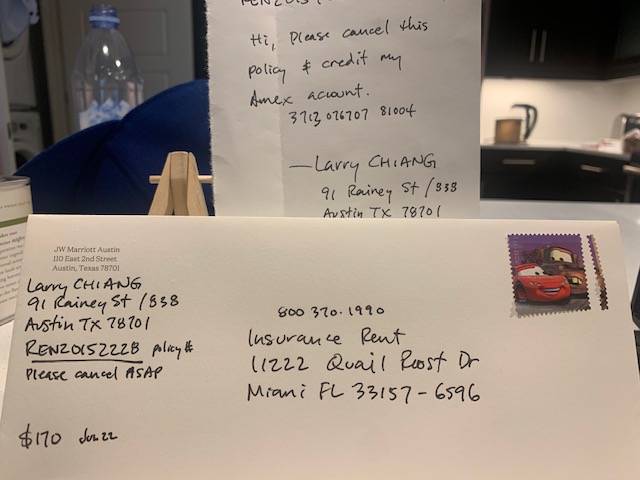 Hi, Please cancel this
policy & credit my
Amex account.
3713 076707 81004
— Larry CHIANG
91 Rainey St / 838
Austin TX 78701
JW Marriott Austin
110 East 2nd Street
Austin, Texas 78701
Larry CHIANG
91 Rainey St / 838
Austin TX 78701
REN2015222B policy #
Please cancel ASAP
$170 Jun 22
800 370.1990
Insurance Rent
11222 Quail Roost Dr
Miami FL 33157-6596